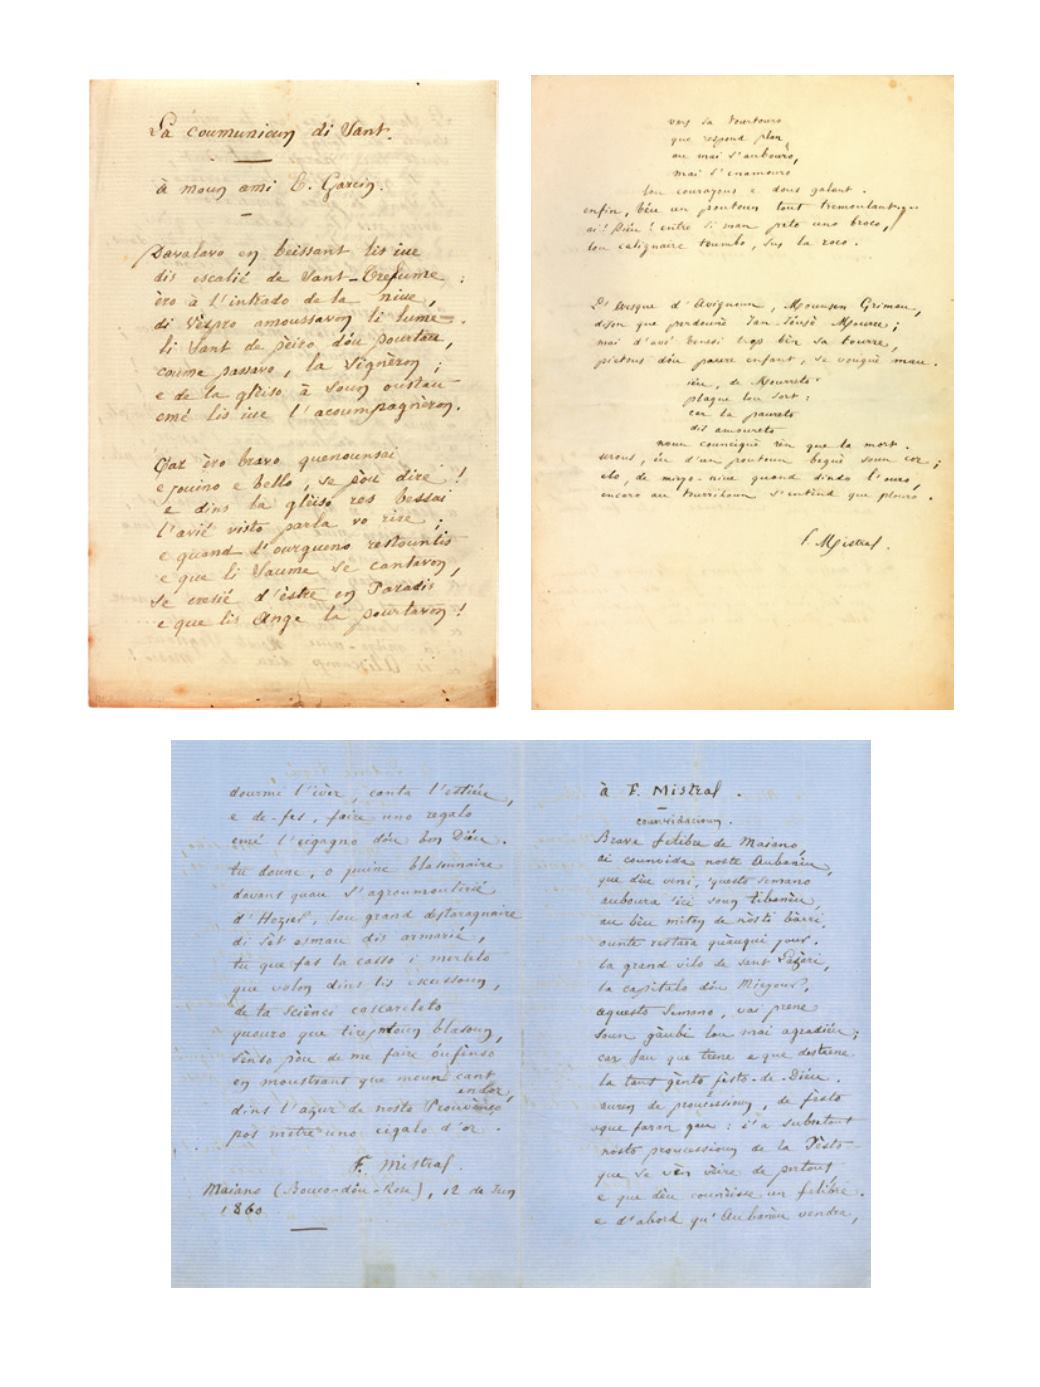 La coumunioun di Sant.
à moun ami E. Garcin.
Davalavo en beissant lis iue
dis escalié de Sant-Trefume :
èro à l'intrado de la niue,
di Vèspro amoussavon li lume.
li Sant de pèiro dóu pourtau,
coume passavo, la signèron ;
e de la glèiso à soun oustau
emé lis iue l'acoumpagnèron.
Car èro bravo quenounsai
e jouino e bello, se pòu dire !
e dins la glèiso res bessai
l'avié visto parla vo rire ;
e quand l'ourgueno restountis
e que li Saume se cantavon,
se cresié d'èstre en Paradis
e que lis Ange la pourtavon !
vers sa tourtouro
que respond plan,
au mai s'aubouro,
mai s'enamouro
lou courajous e dous galant.
enfin, béu un poutoun tout tremoulant
ai ! Diéu ! entre si man peto uno broco,
lou calignaire toumbo, sus la roco.
L'Evesque d'Avignoun, Mounsen Grimau,
dison que perdounè
mai d'avé trop bèn sa tourre,
pietous dóu paure enfant, se vouguè mau.
iéu, de Mourreto
plagne lou sort :
car la paureto
dis amoureto
noun couneiguè rèn que la mort.
urous, éu d'un poutoun beguè soun cor ;
elo, de miejo-niue quand dindo l'ouro,
encaro au s'entènd que plouro.
F. Mistral.
dourmi l'ivèr, canta l'estiéu,
e de-fes, faire uno regalo
emé l'eigagno dóu bon Diéu.
tu doune, o juine blasounaire
davans quau s'agroumoulirié
d'Hozier, lou grand destaragnaire
di sèt esmau dis armarié,
tu que fas la casso i merleto
que volon dins lis escussoun,
de la sciènci cascareleto
quouro que tires moun blasoun,
sènso pòu de me faire óufènso
en moustrant que moun cant
endor,
dins l'azur de nosto Prouvènço
pos metre uno cigalo d'or.
F. Mistral.
Maiano (Bouco-dóu-Rose), 12 de Jun
1860
à F. Mistral.
counvidacioun.
Brave felibre de Maiano,
ai counvida noste Aubanèu,
que dèu veni, 'questo semano
auboura 'ici soun tibanèu,
au bèu mitan de nòsti bàrri,
ounte restara quàuqui jour.
la grand vilo de sant Lazàri,
la capitalo dóu Miejour,
aquesto semano, vai prene
soun gàubi lou mai agradiéu ;
car fau que trene e que destrene
la tant gènto fèsto-de-Diéu.
auren de proucessioun, de fèsto
que faran gau : i'a subretout
nosto proucessioun de la Tèsto
que se vèn vèire de pertout
e que dèu counèisse un felibre.
e d'abord qu'Aubanèu vendra,